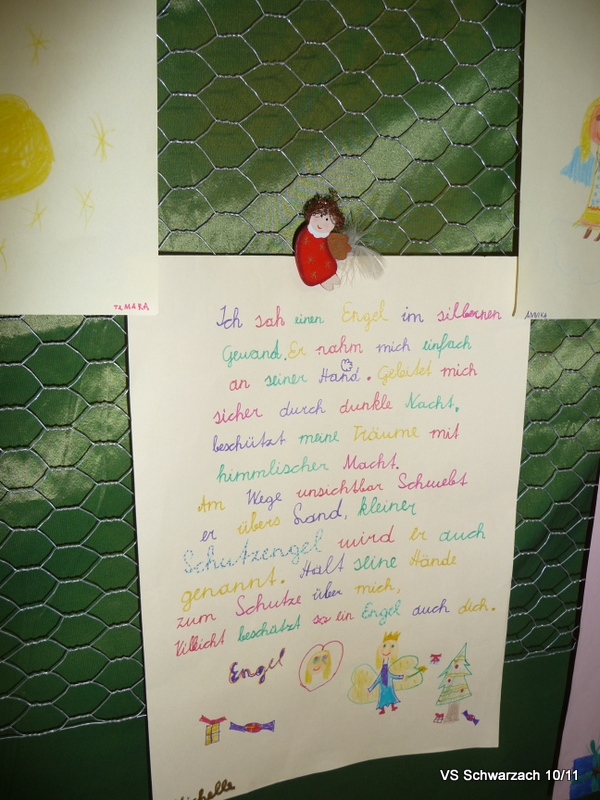 TAMARA
ANNIKA
Ich sah einen Engel im silbernen
Gewand. Er nahm mich einfach
an seiner Hand. Geleitet mich
sicher durch dunkle Nacht,
beschützt meine Träume mit
himmlischer Macht.
Am Wege unsichtbar Schwebt
er übers Land, kleiner
Schutzengel wird er auch
genannt. Hält seine Hände
zum Schutze über mich,
Villeicht beschützt so ein Engel auch dich.
Engel
Michelle
VS Schwarzach 10/11